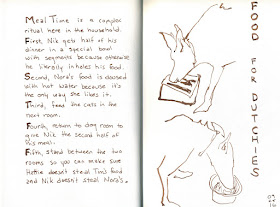 Meal Time is a complex
ritual here in the household.
First, Nik gets half of his
dinner in a special bowl
with segments because otherwise
he literally inhales his food.
Second, Nora's food is doused
with hot water because it's
the only way she likes it.
Third, feed the cats in the
next room.
Fourth, return to dog room to
give Nik the second half of
his meal.
Fifth, stand between the two
rooms so you can make sure
Hattie doesn't steal Tim's food
and Nik doesn't steal Nora's.
FOOD FOR DUTCHIES